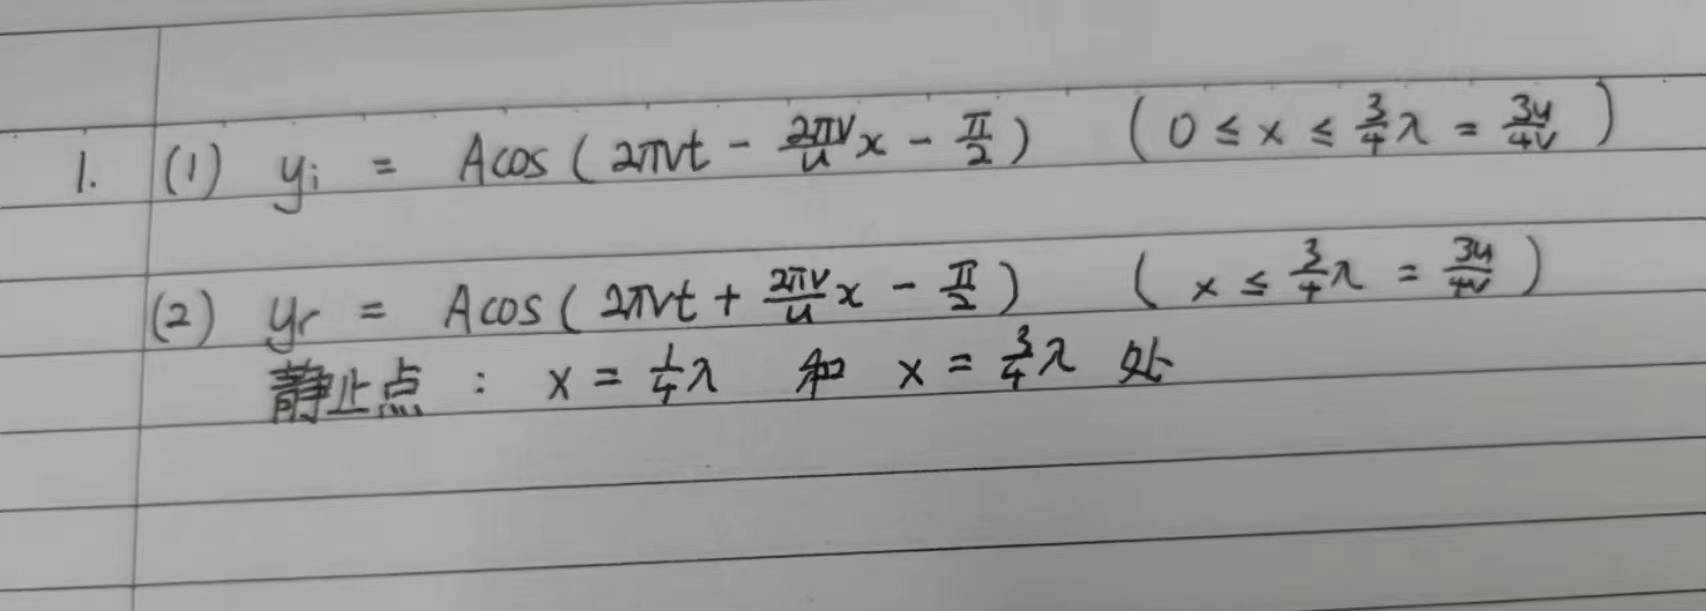 1. (1) yᵢ = Acos(2πνt - 2πν/u x - π/2) (0 ≤ x ≤ 3/4 λ = 3u/4ν)
(2) yᵣ = Acos(2πνt + 2πν/u x - π/2) (x ≤ 3/4 λ = 3u/4ν)
静止点: x = 1/4 λ 和 x = 3/4 λ 处